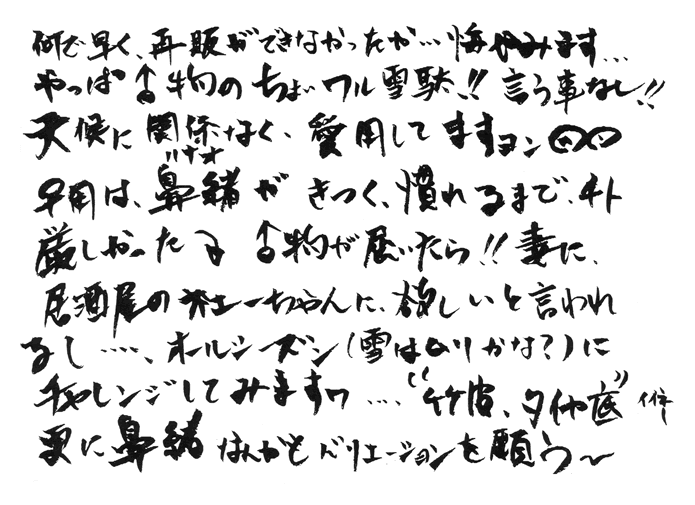 何で早く、再販ができなかったか…悔やみます…
やっぱ♂物のちょいワル雪駄!!言う事なし!!
天候に関係なく、愛用してますヨン
早用は、鼻緒がきつく、慣れるまで、チト
ハナオ
厳しかった ♂物が届いたら!!妻に、
居酒屋の ーちゃんに、欲しいと言われ
るし……、オールシーズン(雪はムリかな?)に
チャレンジしてみますワ…."竹皮、タイヤ底"
更に鼻緒なんかもバリエーションを願う〜